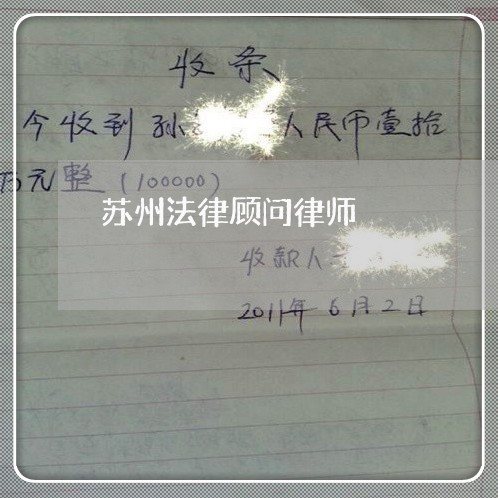 收条
今收到孙 人民币壹拾
万元整(100000)
苏州法律顾问律师
收款人
2011年6月2日